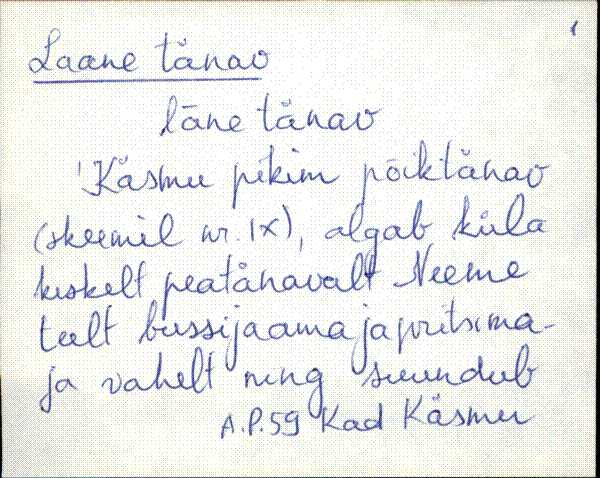 1
Laane tänav
lāne tänav
'Käsmu pikim põiktänav
(skeemil nr. IX), algab küla
keskelt peatänavalt Neeme
teelt bussijaama ja pritsima-
ja vahelt ning suundub
A.P.59 Kad Käsmu